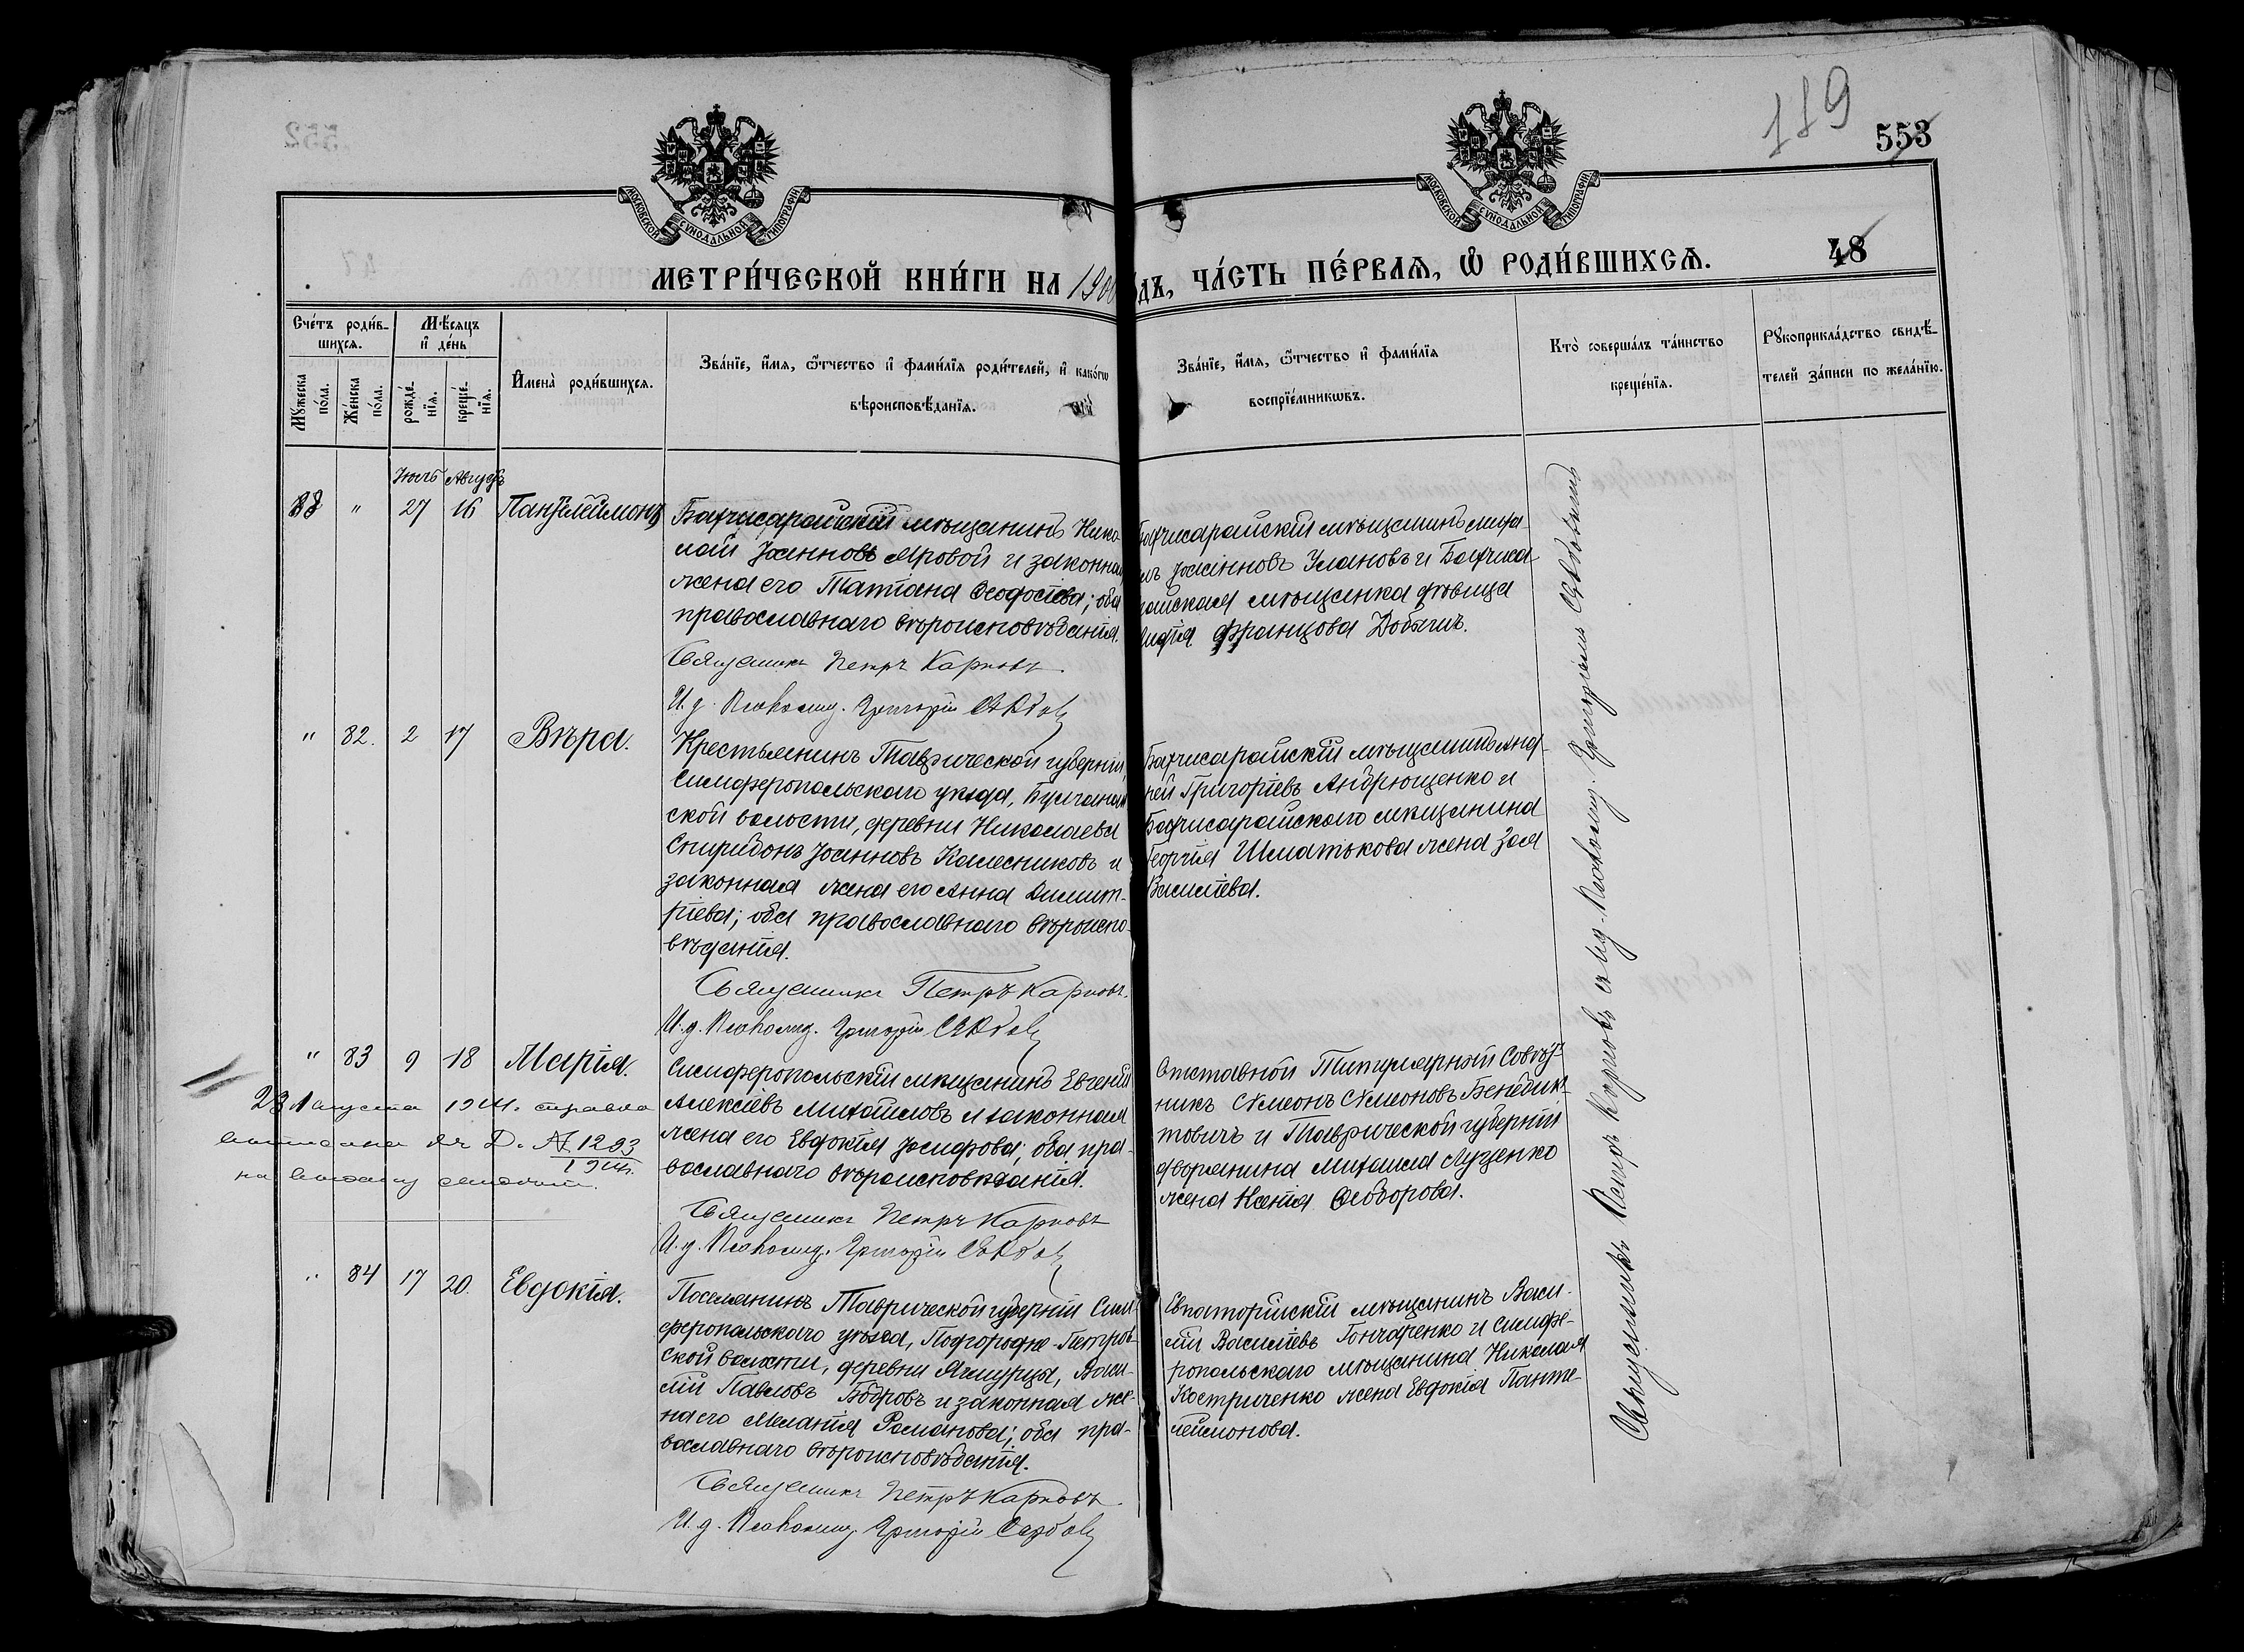 119
553
МОСКОВСКОЙ СѴНОДАЛЬНОЙ ТИПОГРАФІИ
МОСКОВСКОЙ СѴНОДАЛЬНОЙ ТИПОГРАФІИ
МЕТРИ́ЧЕСКОЙ КНИ́ГИ НА 190 ДЪ, ЧА́СТЬ ПЕ́РВАЯ, Ѡ҆ РОДИ́ВШИХСЯ.
48
Сче́тъ роди́в-
шихся.
Мѣ́сяцъ
и҆ де́нь
Мꙋ́жеска
по́ла.
Же́нска
по́ла.
рожде́-
нїя.
креще́-
нїя.
И҆мена̀ роди́вшихся.
Зва́нїе, и҆́мя, ѻ҆́тчество и҆ фами́лїя роди́телей, и҆ како́гѡ
вѣроисповѣ́данїя.
Зва́нїе, и҆́мя, ѻ҆́тчество и҆ фами́лїя
воспрїе́мникѡвъ.
Кто̀ соверша́лъ та́инство
креще́нїя.
Рꙋкоприкла́дство свидѣ́-
телей за́писи по жела́нїю.
Іюль Августъ
88 " 27 16 Пантелеимонъ
Бахчисарайскій мѣщанинъ Нико-
лай Іоанновъ Яровой и законная
жена его Татіана Ѳеофосіева; оба
православнаго вѣроисповѣданія.
Священникъ Петръ Карповъ.
И. д. Псаломщ. Григорій
Бахчисарайскій мѣщанинъ
Іоанновъ Улановъ и Бахчиса-
райская мѣщанка дѣвица
Францова
" 82. 2 17 Вѣра.
Крестьянинъ Таврической губерніи,
Симферопольскаго уѣзда, Булганак-
ской волости, деревни Николаевка
Спиридонъ Іоанновъ Калесниковъ и
законная жена его Анна Димит-
ріева; оба православнаго вѣроиспо-
вѣданія.
Священникъ Петръ Карповъ.
И. д. Псаломщ. Григорій
Бахчисарайскій мѣщанинъ Анд-
рей Григоріевъ Андрющенко и
Бахчисарайскаго мѣщанина
Георгія Шматькова жена Зоя
Васильева.
" 83 9 18 Марія.
Симферопольскій мѣщанинъ Евгеній
Алексіевъ Михайловъ и законная
жена его Евдокія Іосифова; оба пра-
вославнаго вѣроисповѣданія.
Священникъ Петръ Карповъ
И. д. Псаломщ. Григорій
28 Августа справка
Д. № 1293
на
Отставной Титулярный Совѣт-
никъ Сѵмеонъ Сѵмеоновъ Бенедик-
товичъ и Таврической губерніи
дворянина Михаила Луценко
жена Ксенія Ѳеодорова.
" 84 17 20. Евдокія.
Поселянинъ Таврической губерніи Сим-
феропольскаго уѣзда, Подгородне-Петров-
ской волости, деревни Ягмурцы, Васи-
лій Павловъ Бобровъ и законная же-
на его Меланія Романова; оба пра-
вославнаго вѣроисповѣданія.
Священникъ Петръ Карповъ.
И. д. Псаломщ. Григорій
Евпаторійскій мѣщанинъ Васи-
лій Василіевъ Гончаренко и Симфе-
ропольскаго мѣщанина Николая
Костриченко жена Евдокія Панте-
леимонова.
Священникъ Петръ Карповъ съ и. д. Псаломщ. Григоріемъ